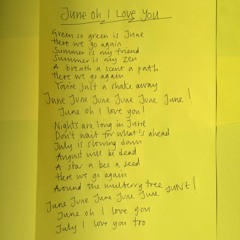 June oh I Love You
Green so green is June
Here we go again
Summer is my friend
Summer is my Zen
A breath a scent a path
Here we go again
You're just a shake away
June June June June June June!
June oh I love you!
Nights are long in June
Don't wait for what's ahead
July is slowing down
August will be dead
A star a bee a seed
Here we go again
Around the mulberry tree
June June June June June JUNE!
June oh I love you
July I love you too